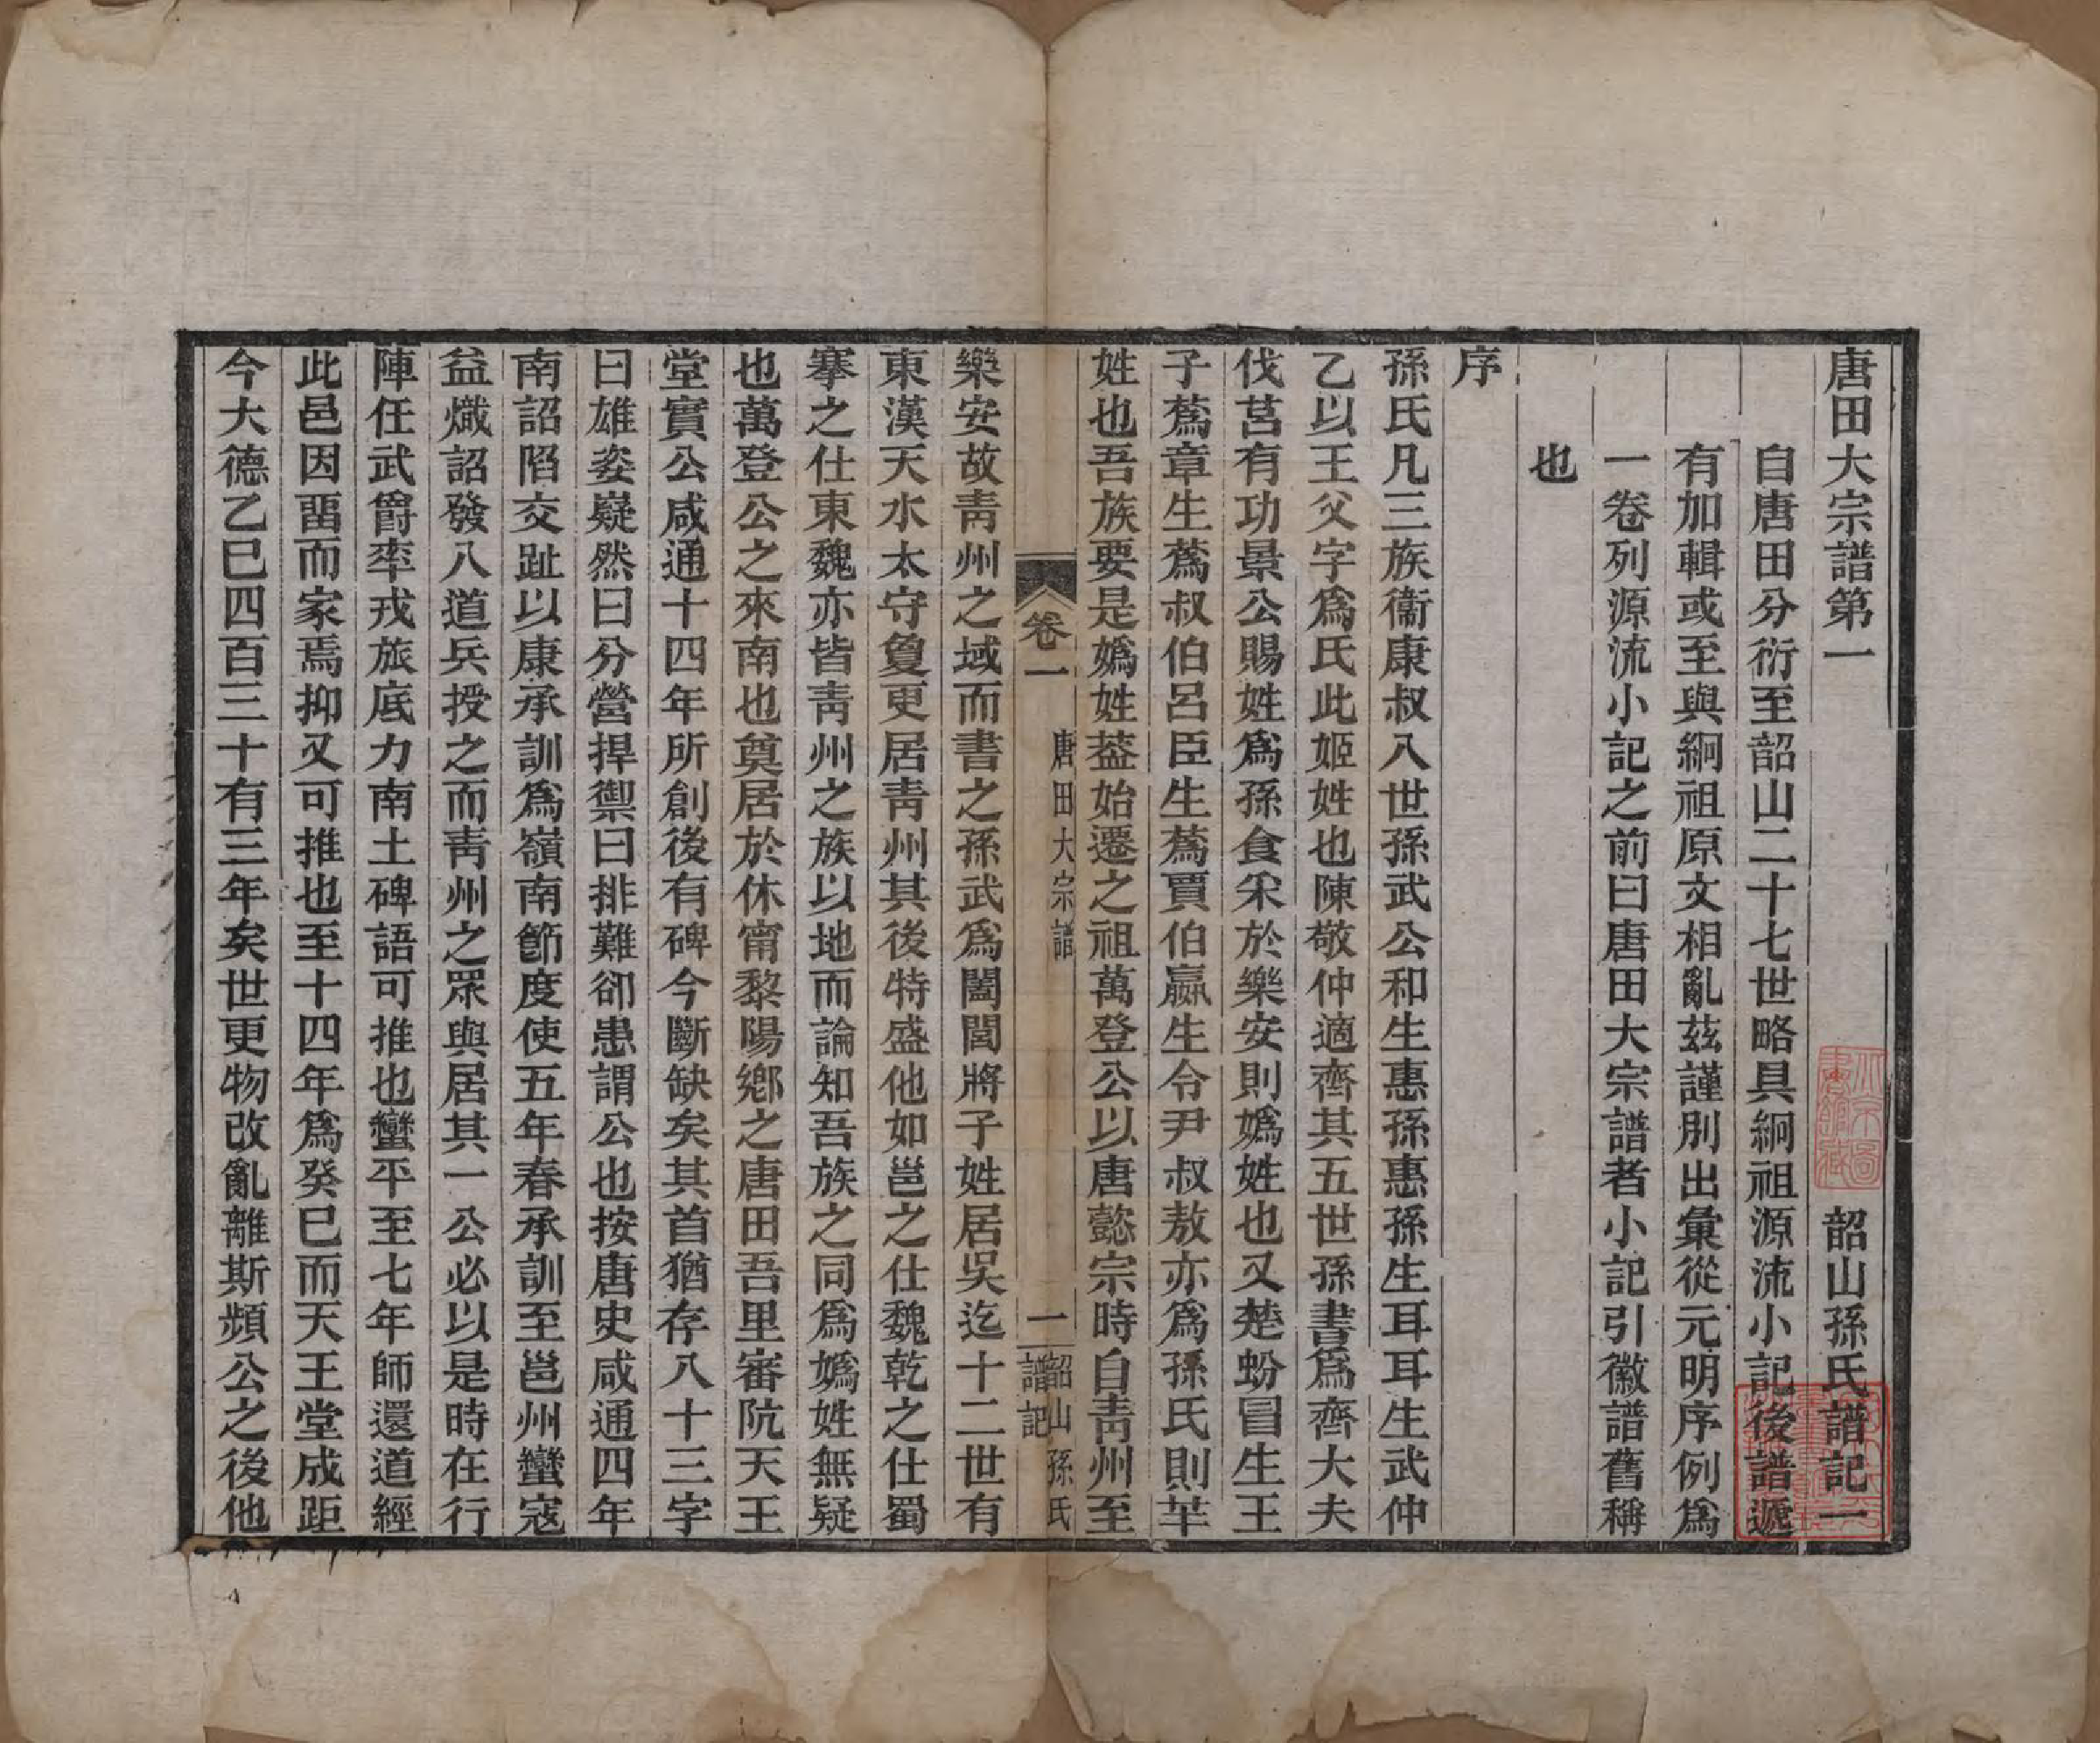 唐田大宗譜第一　　　韶山孫氏譜記一
自唐田分衍至韶山二十七世略具絅祖源流小記後譜遞
有加輯或至與絅祖原文相亂茲謹別出彙從元明序例爲
一卷列源流小記之前曰唐田大宗譜者小記引徽譜舊稱
也
序
孫氏凡三族衞康叔八世孫武公和生惠孫惠孫生耳耳生武仲
乙以王父字爲氏此姬姓也陳敬仲適齊其五世孫書爲齊大夫
伐莒有功景公賜姓爲孫食采於樂安則嬀姓也又楚蚡冒生王
子蒍章生蒍叔伯呂臣生蒍賈伯嬴生令尹叔敖亦爲孫氏則芈
姓也吾族要是嬀姓葢始遷之祖萬登公以唐懿宗時自靑州至
卷一
唐田大宗譜
一
韶山孫氏
譜記
樂安故靑州之域而書之孫武爲闔閭將子姓居吳迄十二世有
東漢天水太守敻更居靑州其後特盛他如邕之仕魏乾之仕蜀
搴之仕東魏亦皆靑州之族以地而論知吾族之同爲嬀姓無疑
也萬登公之來南也奠居於休甯黎陽鄉之唐田吾里審阬天王
堂實公咸通十四年所創後有碑今斷缺矣其首猶存八十三字
曰雄姿嶷然曰分營捍禦曰排難卻患謂公也按唐史咸通四年
南詔陷交趾以康承訓爲嶺南節度使五年春承訓至邕州蠻寇
益熾詔發八道兵授之而靑州之眾與居其一公必以是時在行
陣任武爵率戎旅底力南土碑語可推也蠻平至七年師還道經
此邑因畱而家焉抑又可推也至十四年爲癸巳而天王堂成距
今大德乙巳四百三十有三年矣世更物改亂離斯頻公之後他